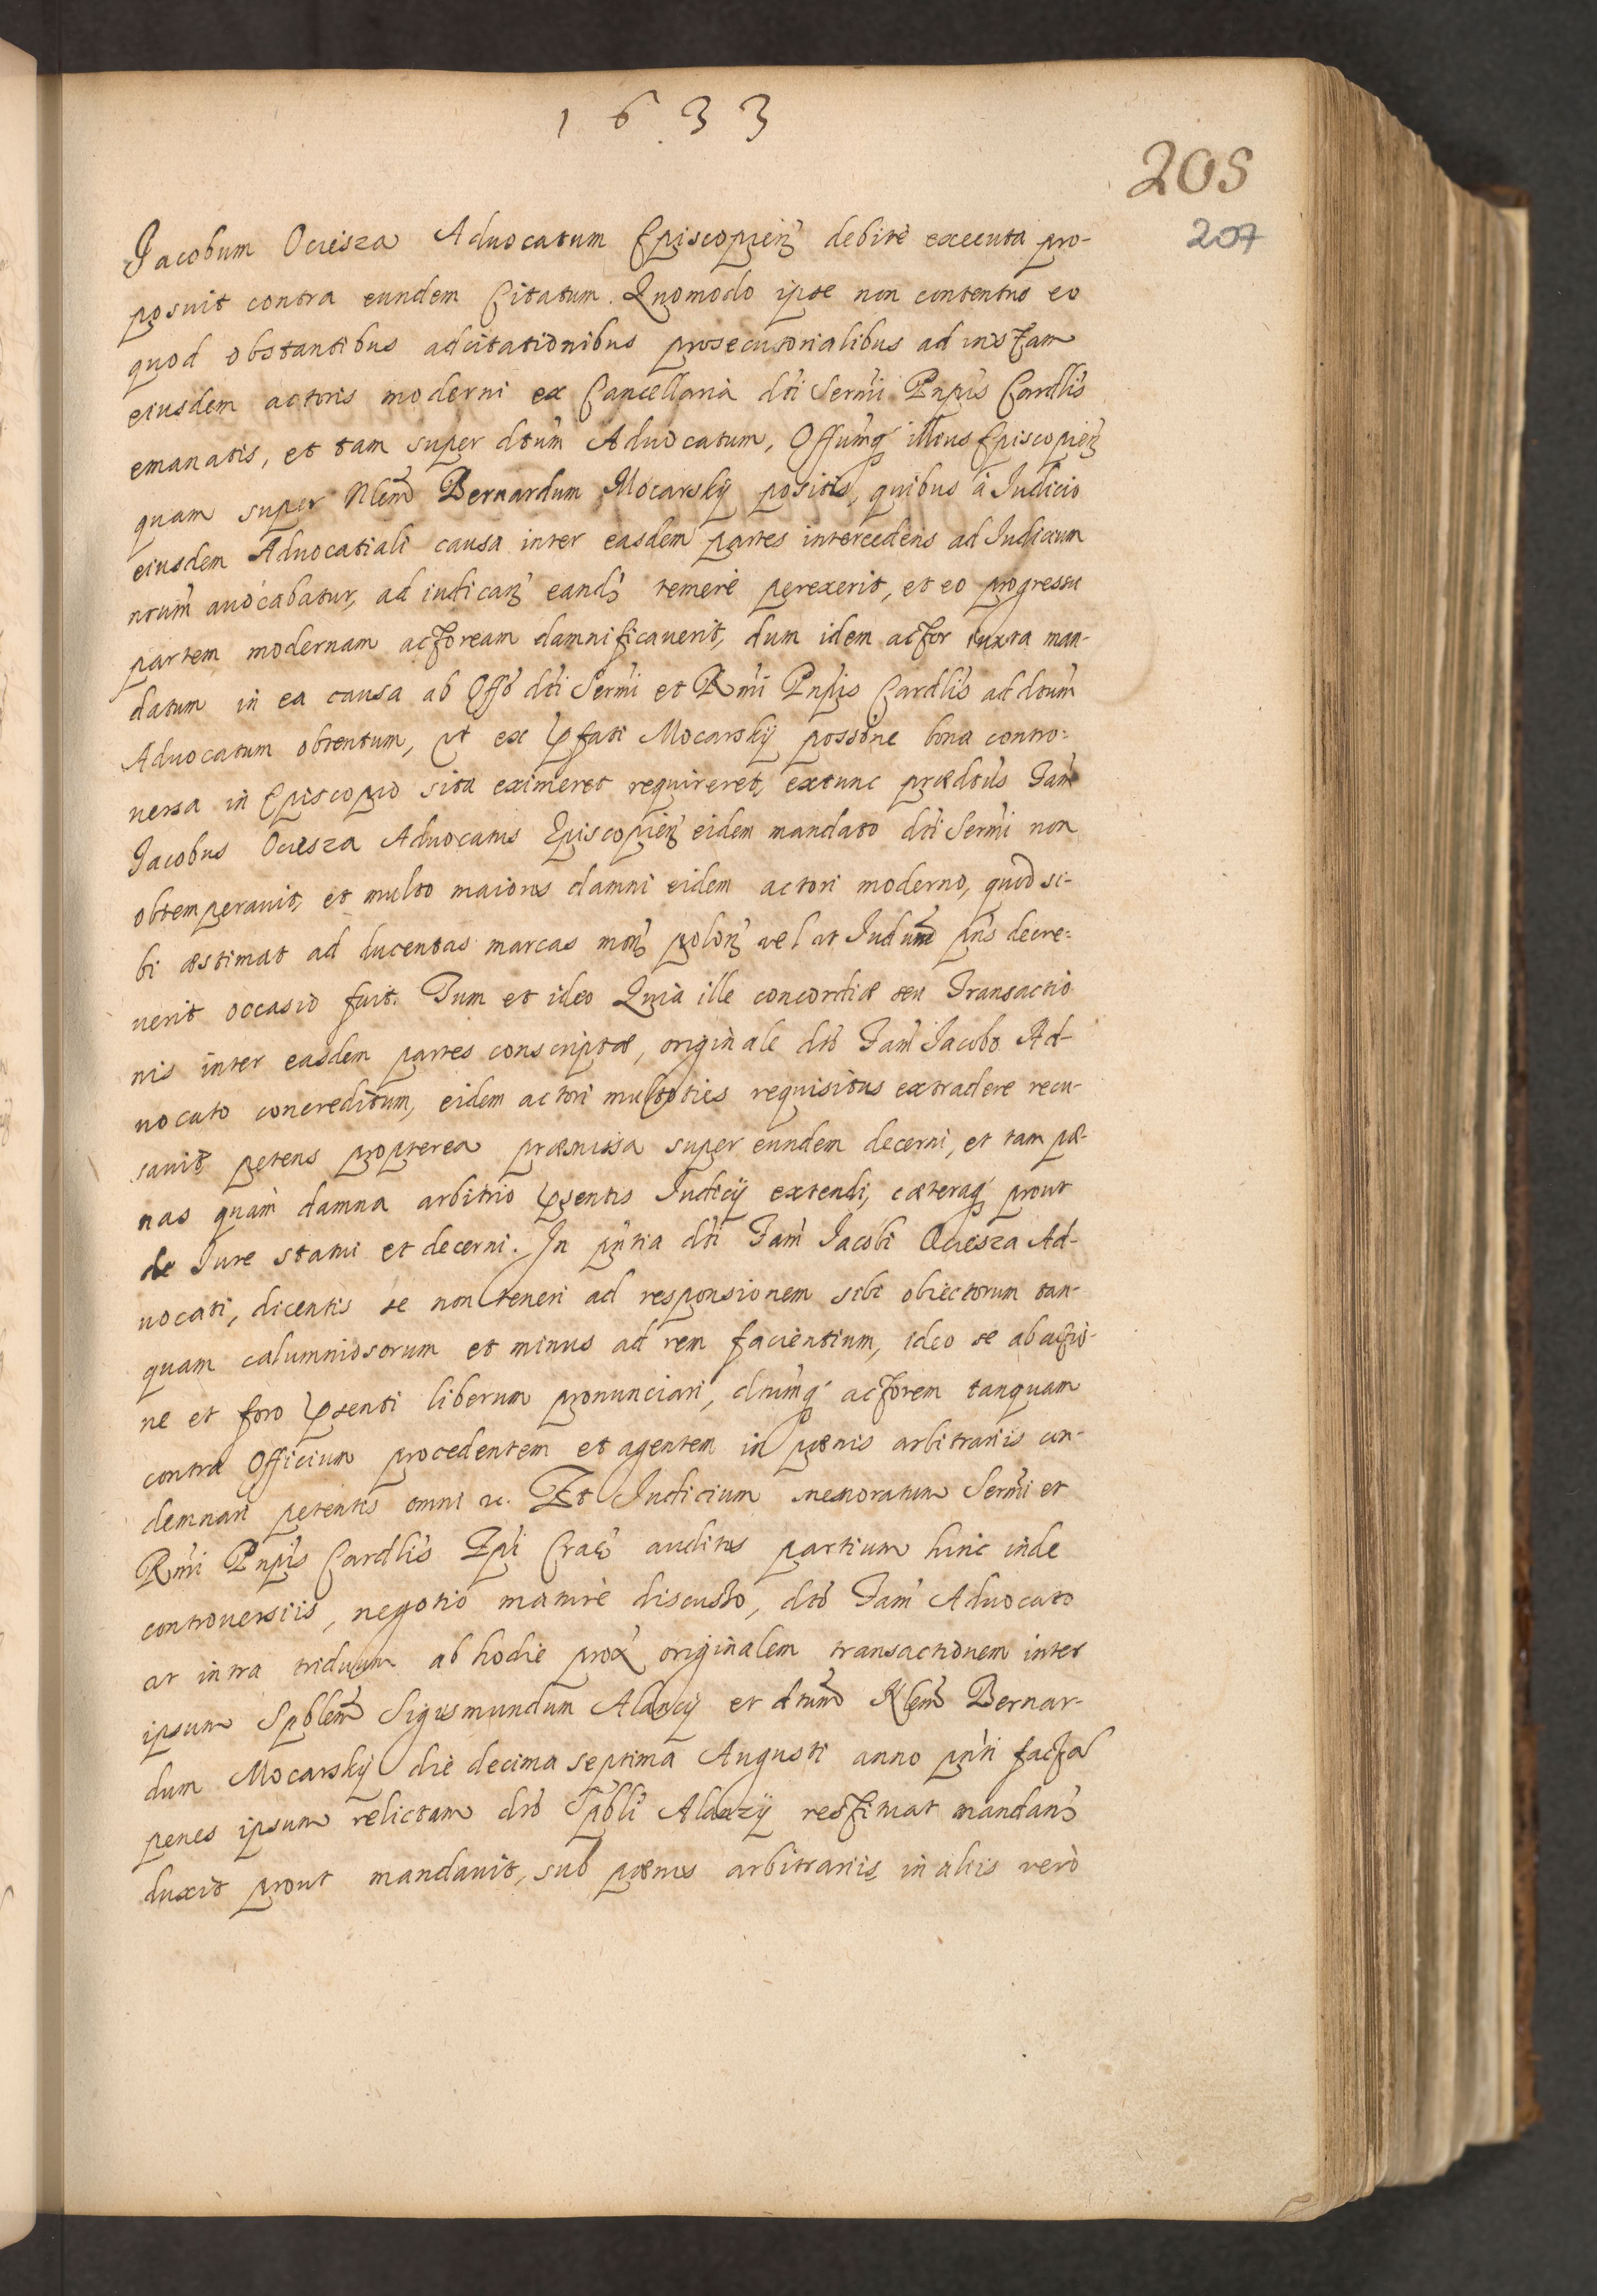 1633
205
207
Jacobum Ociesza Aduocatum Episcopien̄ debitè executa pro-
posuit contra eundem Citatum. Quomodo ipse non contentus eo
quod obstantibus adcitationibus prosecutorialibus ad instam
eiusdem actoris moderni ex Cancellaria dti Sermi Pnpis Cardlis
emanatis, et tam super dtum Aduocatum, Offumq; illius Episcopien̄
quam super Nlem Bernardum Mocarskÿ positis, quibus à Iudicio
eiusdem Aduocatiali causa inter easdem partes intercedens ad Iudicium
nrum auocabatur, ad iudican̄ eand̄ temerè perexerit, et eo progressu
partem modernam actoream damnificauerit, dum idem actor iuxta man-
datum in ea causa ab Offo dti Sermi et Rmi Pnpis Cardlis ad dtum
Aduocatum obtentum, vt ex pfati Mocarskÿ possone bona contro:
uersa in Episcopio sita eximeret requireret, extunc prædtus Fam
Jacobus Ociesza Aduocatus Episcopien̄ eidem mandato dti Sermi non
obtemperauit, et multo maioris damni eidem actori moderno, quod si-
bi æstimat ad ducentas marcas mon̄ polon̄ vel vt Iudum pns decre:
uerit occasio fuit. Tum et ideo Quia ille concordiæ seu Transactio
nis inter easdem partes conscriptæ, originale dto Fam Iacobo Ad-
uocato concreditum, eidem actori multoties requisitus extradere recu-
sauit petens propterea præmissa super eundem decerni, et tam pæ-
nas quàm damna arbitrio psentis Iudicÿ extendi, cæteraq; prout
de Iure statui et decerni. In pntia dti Fam Iacobi Ociesza Ad-
uocati, dicentis se non teneri ad responsionem sibi obiectorum tan-
quam calumniosorum et minus ad rem facientium, ideo se ab actio-
ne et foro psenti liberum pronunciari, dtumq; actorem tanquam
contra Officium procedentem et agentem in pænis arbitrariis con-
demnari petentis omni &c. Et Iudicium memoratum Sermi et
Rmi Pnpis Cardlis Epi Crac̄ auditis partium hinc inde
controuersiis, negotio maturè discusso, dto Fam Aduocato
vt intra triduum ab hodie prox originalem transactionem inter
ipsum Spblem Sigismundum Alanzÿ et dtum Nlem Bernar-
dum Mocarskÿ die decima septima Augusti anno pnti facta
penes ipsum relictam dto Spbli Alanzÿ restituat mandan̄
duxit prout mandauit, sub pænis arbitrariis in aliis verò